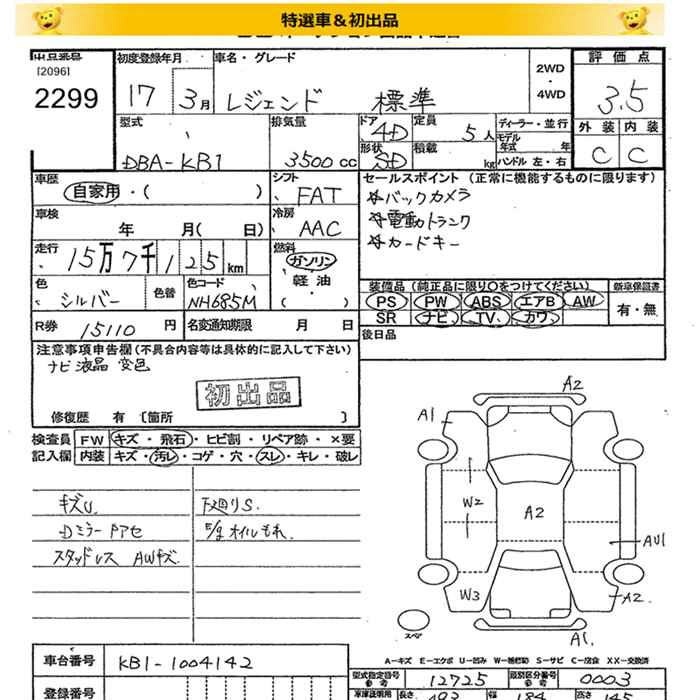 特選車＆初出品
出品番号
[2096]
2299
初度登録年月
17 3月
車名・グレード
レジェンド 標準
2WD
・
4WD
評価点
3.5
外装 内装
C C
型式
DBA-KB1
排気量
3500 cc
ドア
4D
形状
SD
定員
5人
積載
kg
ディーラー・並行
モデル
年式 年
ハンドル 左・右
車歴
自家用・( )
シフト
FAT
車検
年 月( 日)
冷房
AAC
走行
15万7千125km
燃料
ガソリン
・
軽油
・( )
色
シルバー
色替
色コード
NH685M
R券 15110 円
名変通知期限 月 日
セールスポイント (正常に機能するものに限ります)
☆バックカメラ
☆電動トランク
☆カードキー
装備品(純正品に限り○をつけてください)
PS PW ABS エアB AW
SR ナビ TV カワ
新車保証書
有・無
後日品
注意事項申告欄(不具合内容等は具体的に記入して下さい)
ナビ液晶変色
初出品
修復歴 有 [箇所 ]
検査員 FW キズ・飛石・ヒビ割・リペア跡・×要
記入欄 内装 キズ・汚レ・コゲ・穴・スレ・キレ・破レ
キズU.
Dミラーアセ
スタッドレス AWキズ.
下廻りS.
E/gオイルもれ.
A2
A1
W2
A2
AU1
W3
A2
A1.
スペア
A－キズ E－エクボ U－凹み W－補修跡 S－サビ C－腐食 XX－交換済
車台番号 KB1-1004142
登録番号
型式指定番号
参考
12725
類別区分番号
参考
0003
車庫証明用
長さ
493
幅
184
高さ
145